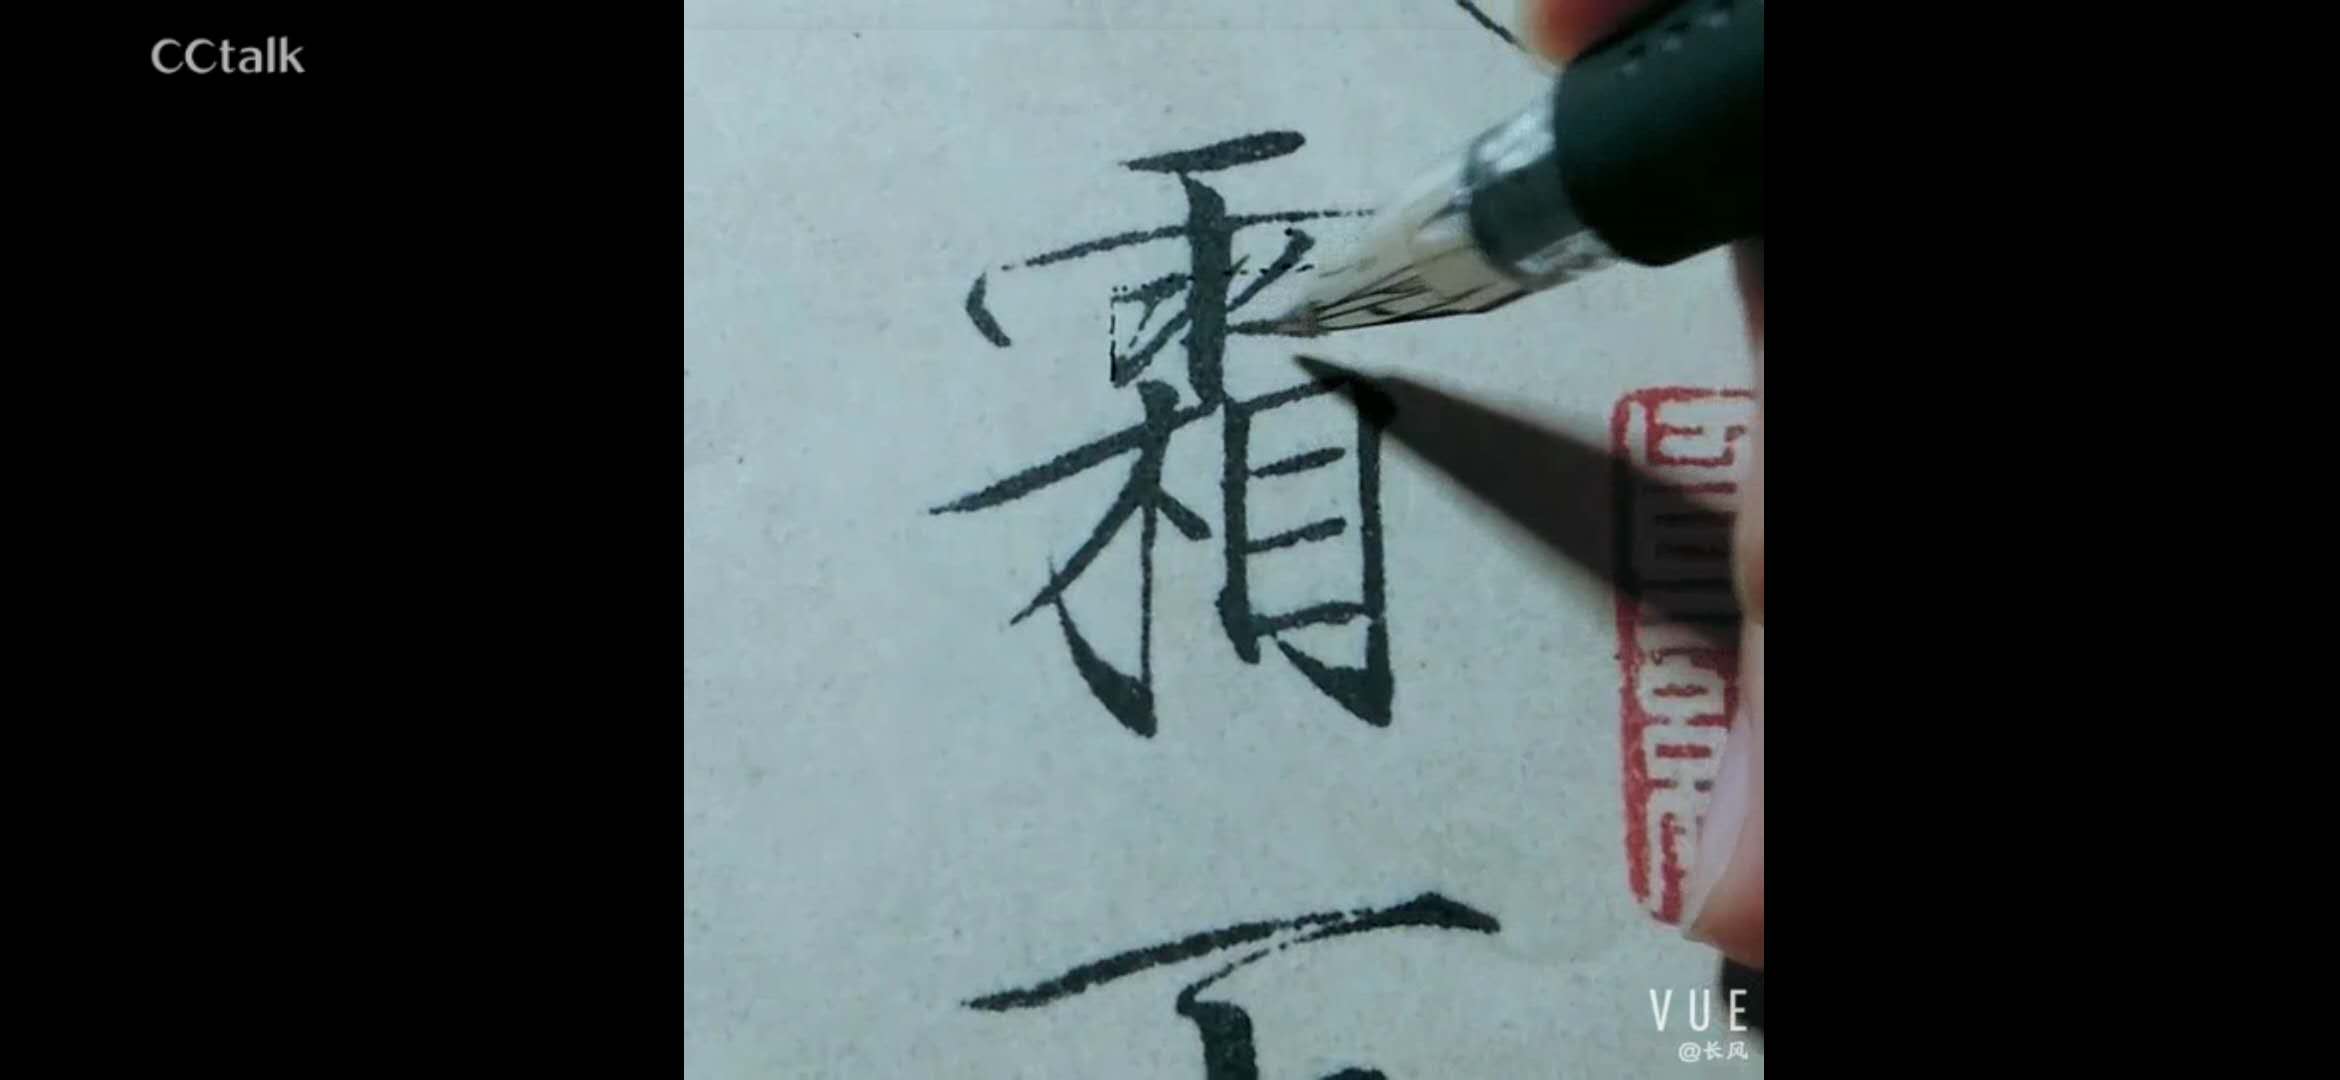 CCtalk
霜
下
VUE
@长风